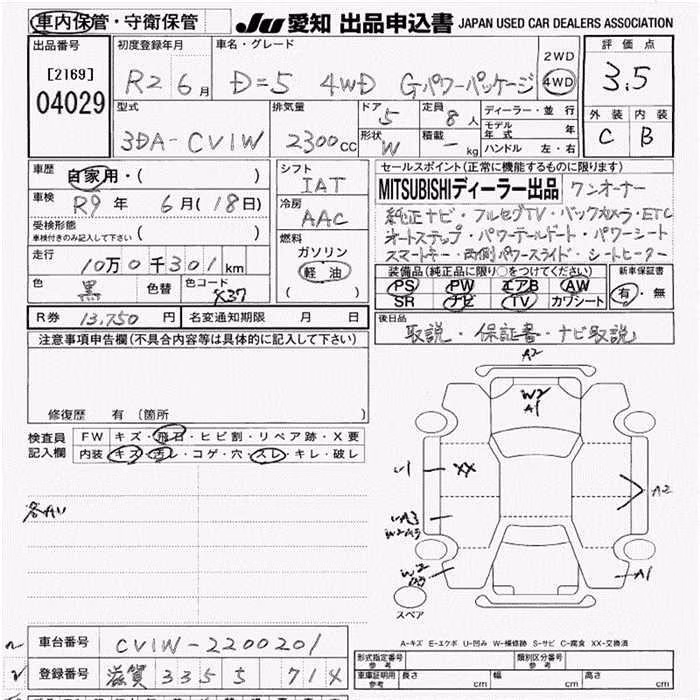 車内保管・守衛保管
JU 愛知 出品申込書 JAPAN USED CAR DEALERS ASSOCIATION
出品番号
[2169]
04029
初度登録年月
R2 6月
車名・グレード
D=5 4WD Gパワーパッケージ
2WD
4WD
評価点
3.5
型式
3DA-CV1W
排気量
2300cc
ドア
5
形状
W
定員
8人
積載
- kg
ディーラー・並行
モデル年式 年
ハンドル 左・右
外装
C
内装
B
車歴
自家用・( )
車検
R9年 6月(18日)
受検形態
車検付きのみ記入して下さい ( )
走行
10万0千301km
色
黒
色替
色コード
X37
シフト
IAT
冷房
AAC
燃料
ガソリン
軽油
( )
セールスポイント(正常に機能するものに限ります)
MITSUBISHIディーラー出品 ワンオーナー
純正ナビ・フルセグTV・バックカメラ・ETC
オートステップ・パワーテールドート・パワーシート
スマートキー・両側パワースライド・シートヒーター
装備品(純正品に限り○をつけてください)
PS PW エアB AW
SR ナビ TV カワシート
新車保証書
有・無
R券 13,750円
名変通知期限 月 日
後日品
取説・保証書・ナビ取説
注意事項申告欄(不具合内容等は具体的に記入して下さい)
修復歴 有 (箇所 )
検査員記入欄
FW キズ・飛石・ヒビ割・リペア跡・X要
内装 キズ・汚レ・コゲ・穴・スレ・キレ・破レ
A2
W2
A1
XX
A2
W2
A1
スペア
A-キズ E-エクボ U-凹み W-補修跡 S-サビ C-腐食 XX-交換済
車台番号
CV1W-2200201
登録番号
滋賀 335 す 714
形式指定番号
参考
類別区分番号
参考
車庫証明用
参考
長さ
幅
高さ